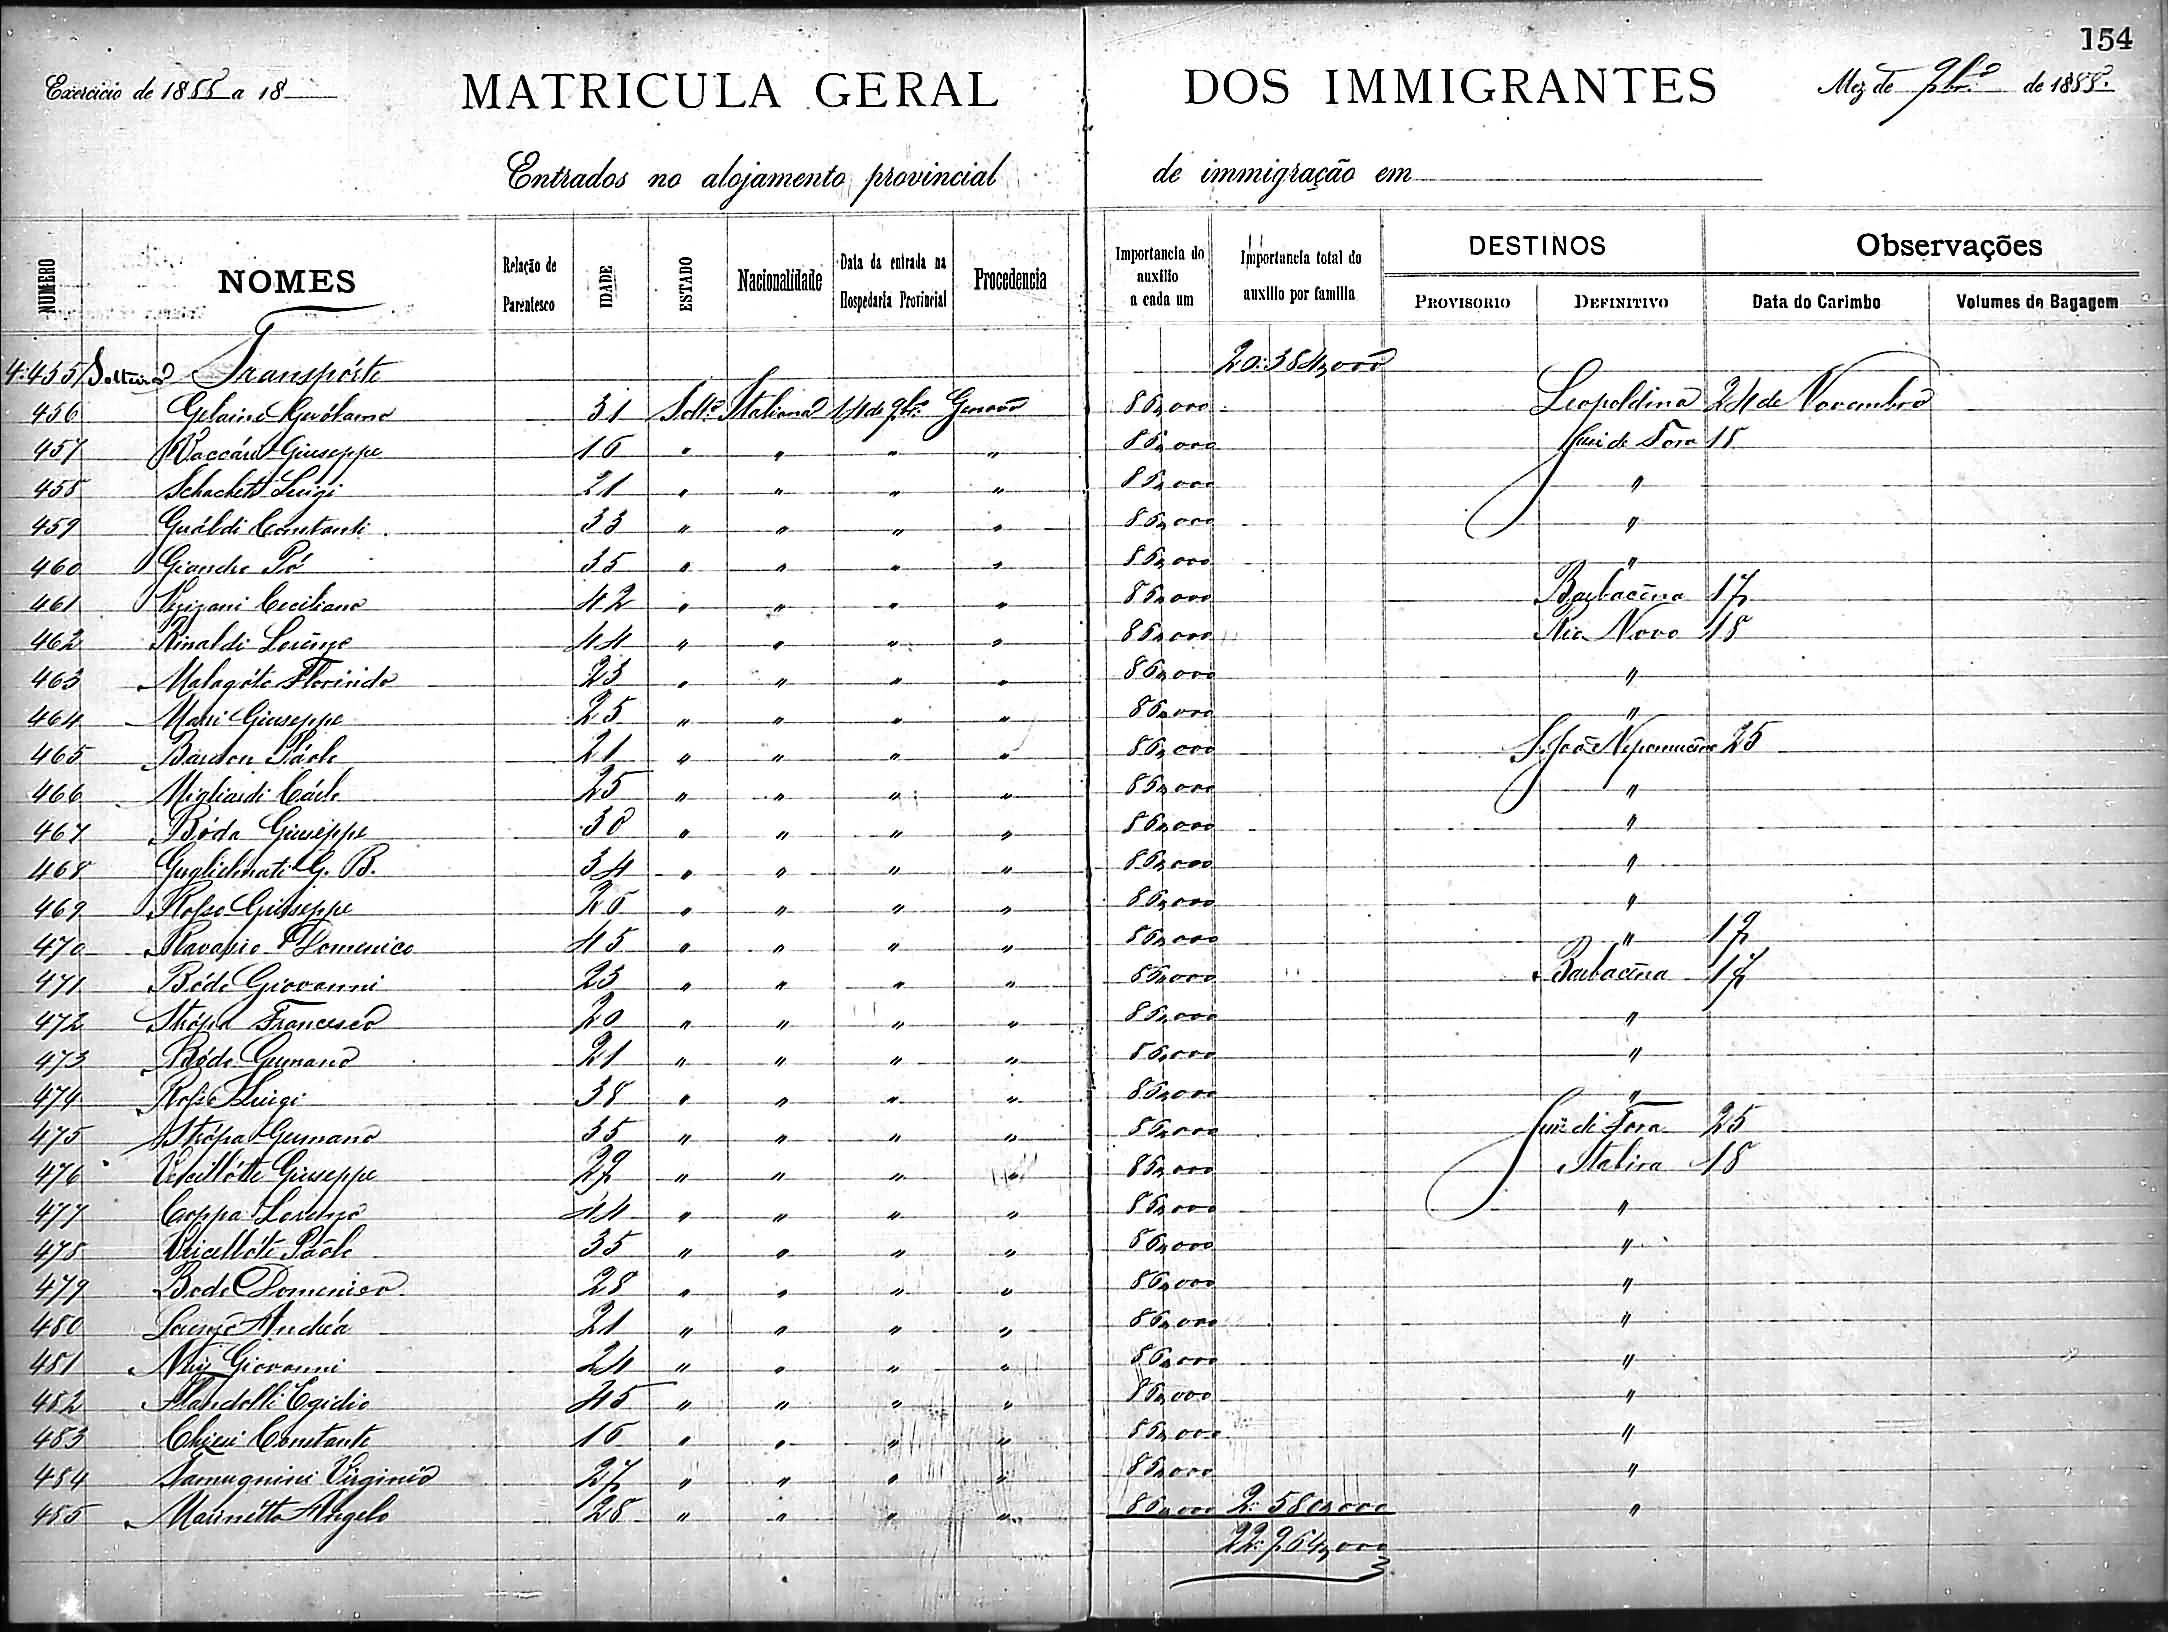 154
Exercicio de 1888 a 18
MATRICULA GERAL DOS IMMIGRANTES
Mez de 9br.o de 1888.
Entrados no alojamento provincial de immigração em
NUMERO NOMES Relação de Parentesco IDADE ESTADO Nacionalidade Data da entrada na Hospedaria Provincial Procedencia Importancia do auxilio a cada um Importancia total do auxilio por familia DESTINOS PROVISORIO DEFINITIVO Observações Data do Carimbo Volumes de Bagagem
4:455 Solteiro Transpórte 20:384,000
456 Girólamo 31 Solt.o Italiano 14 de 9br.o Genova 86,000 Leopoldina 24 de Novembro
457 Giuseppe 16 " " " " 86,000 Juiz de Fora 18
458 Luigi 21 " " " " 86,000 "
459 Guáldi Constanti 33 " " " " 86,000 "
460 Pó 35 " " " " 86,000 "
461 Ceciliano 42 " " " " 86,000 Barbacena 17
462 Rinaldi Lorenzo 44 " " " " 86,000 Rio Novo 18
463 Malagóte Florindo 23 " " " " 86,000 "
464 Giuseppe 25 " " " " 86,000 "
465 Páolo 21 " " " " 86,000 S. João Nepomuceno 25
466 Migliardi Cárlo 25 " " " " 86,000 "
467 Bóda Giuseppe 30 " " " " 86,000 "
468 G. B. 34 " " " " 86,000 "
469 Rosso Giuseppe 26 " " " " 86,000 "
470 Domenico 45 " " " " 86,000 " 17
471 Bódo Giovanni 23 " " " " 86,000 Barbacena 17
472 Strópa Francesco 20 " " " " 86,000 "
473 Bódo Germano 21 " " " " 86,000 "
474 Rosso Luigi 38 " " " " 86,000 "
475 Strópa Germano 35 " " " " 86,000 Juiz di Fora 25
476 Giuseppe 27 " " " " 86,000 Itabira 18
477 Coppa Lorenzo 44 " " " " 86,000 "
478 Páolo 35 " " " " 86,000 "
479 Bodo Domenico 28 " " " " 86,000 "
480 Lorenzo Andréa 21 " " " " 86,000 "
481 Giovanni 24 " " " " 86,000 "
482 Egidio 45 " " " " 86,000 "
483 Constante 16 " " " " 86,000 "
484 Virginio 27 " " " " 86,000 "
485 Angelo 28 " " " " 86,000 2:580,000 "
22:964,000